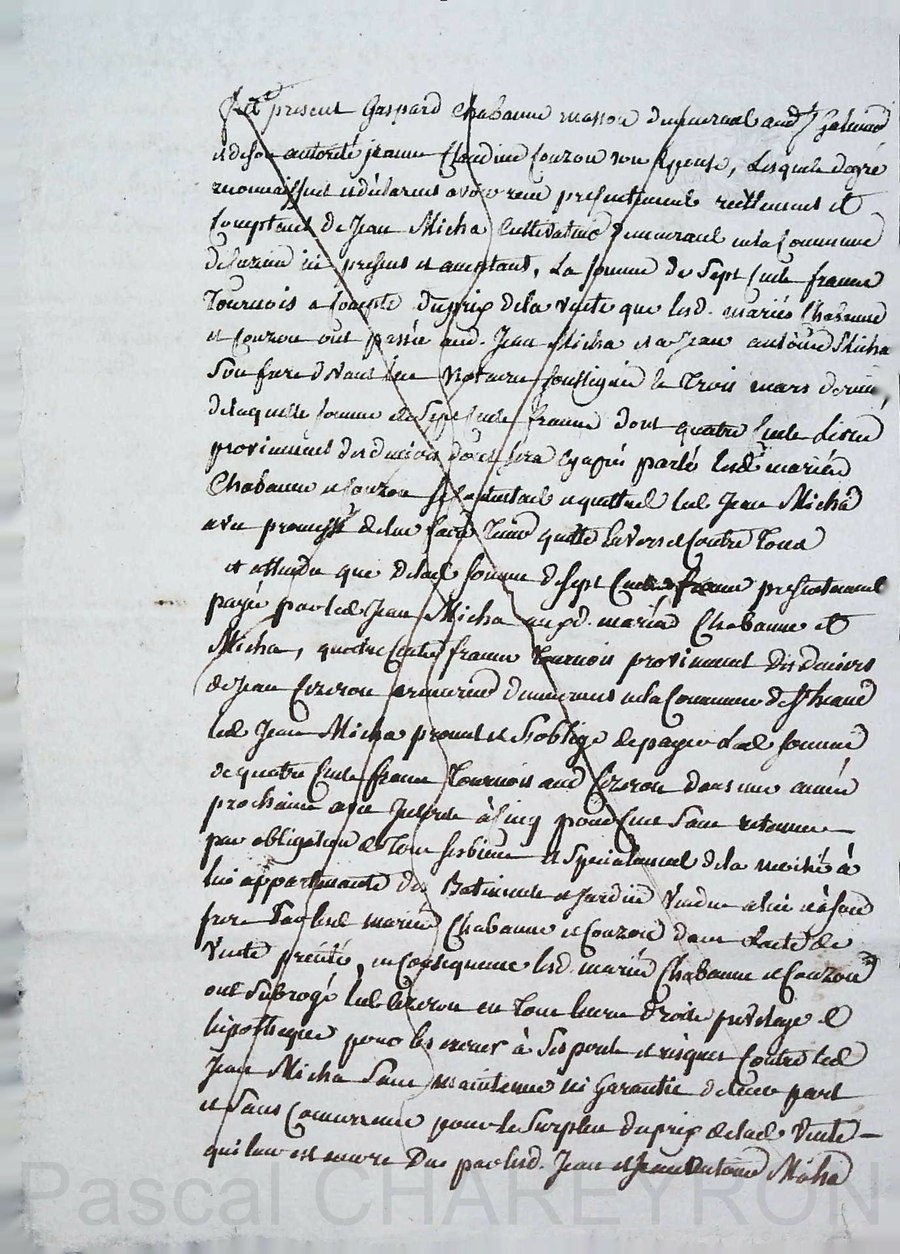 fut present Gaspard Chabanne masson demeurant aud. St Galmier
et de son autorité jeanne Claudine Couzon son Epouse, Lesquels de gré
reconnaissent et déclarent avoir reçu presentement reellement et
Comptant de Jean Micha Cultivateur demeurant en la Commune
ici present et acceptant, La somme de Sept Cents francs
Tournois a Compte du prix de la Vente que lesd. mariés Chabanne
et Couzon ont passée aud. Jean Micha et a Jean antoine Micha
Son frere devant Le Notaire soussigné le Trois mars dernier,
de laquelle somme de Sept Cents francs dont quatre Cents Livres
provenants des deniers dont sera Cy après parlé lesd. mariés
Chabanne et Couzon se contentent et quittent led. Jean Micha
avec promesse de l'en faire Tenir quitte Envers et Contre Tous
et attendu que de lad. somme de sept Cents francs presentement
payée par led. Jean Micha auxd. mariés Chabanne et
Micha, quatre Cents francs Tournois proviennent des deniers
de Jean Cizeron demeurant en la Commune de St heand
led. Jean Micha promet et s'oblige de payer Lad. somme
de quatre Cents francs Tournois aud. Cizeron dans une année
prochaine avec Interet à Cinq pour Cent Sans retenue
par obligation de Tous ses biens et Specialement de la moitié à
lui appartenante des Batiments et Jardin Vendus a lui et à son
frere Par lesd. mariés Chabanne et Couzon dans L'acte de
Vente précité, en Consequence lesd. mariés Chabanne et Couzon
ont Subrogé led. Cizeron en Tous leurs droits privilege et
hipotheque pour les exercer à Ses perils et risques Contre led.
Jean Micha Sans maintenue ni Garantie de leur part
et Sans Concurrence pour le Surplus du prix de lad. Vente
qui leur est encore Due par lesd. Jean et Jean Antoine Micha
Pascal CHAREYRON